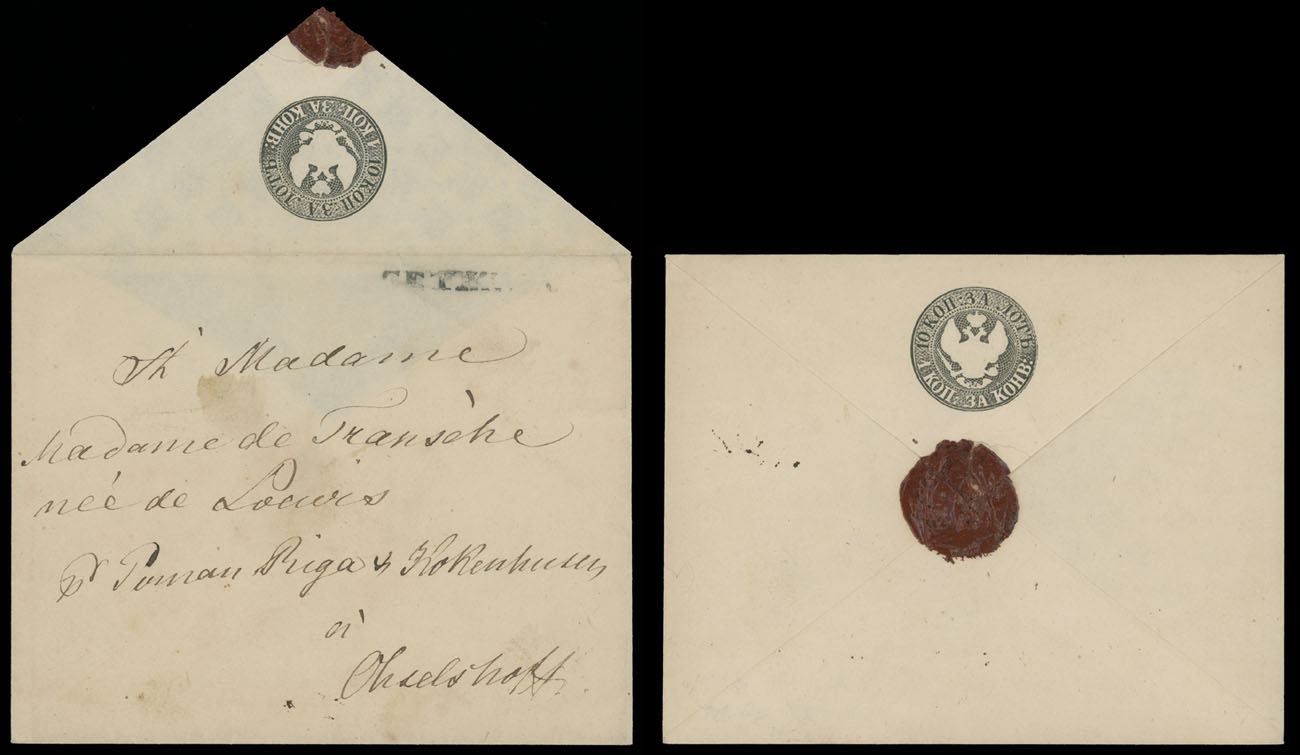 10 КОП: ЗА ЛОТЪ.
1 КОП: ЗА КОНВ:
à Madame
Madame de Transéhe
née de Loewis
pr Riga & Kokenhusen
à
Ohselshoff
10 КОП: ЗА ЛОТЪ
1 КОП: ЗА КОНВ: